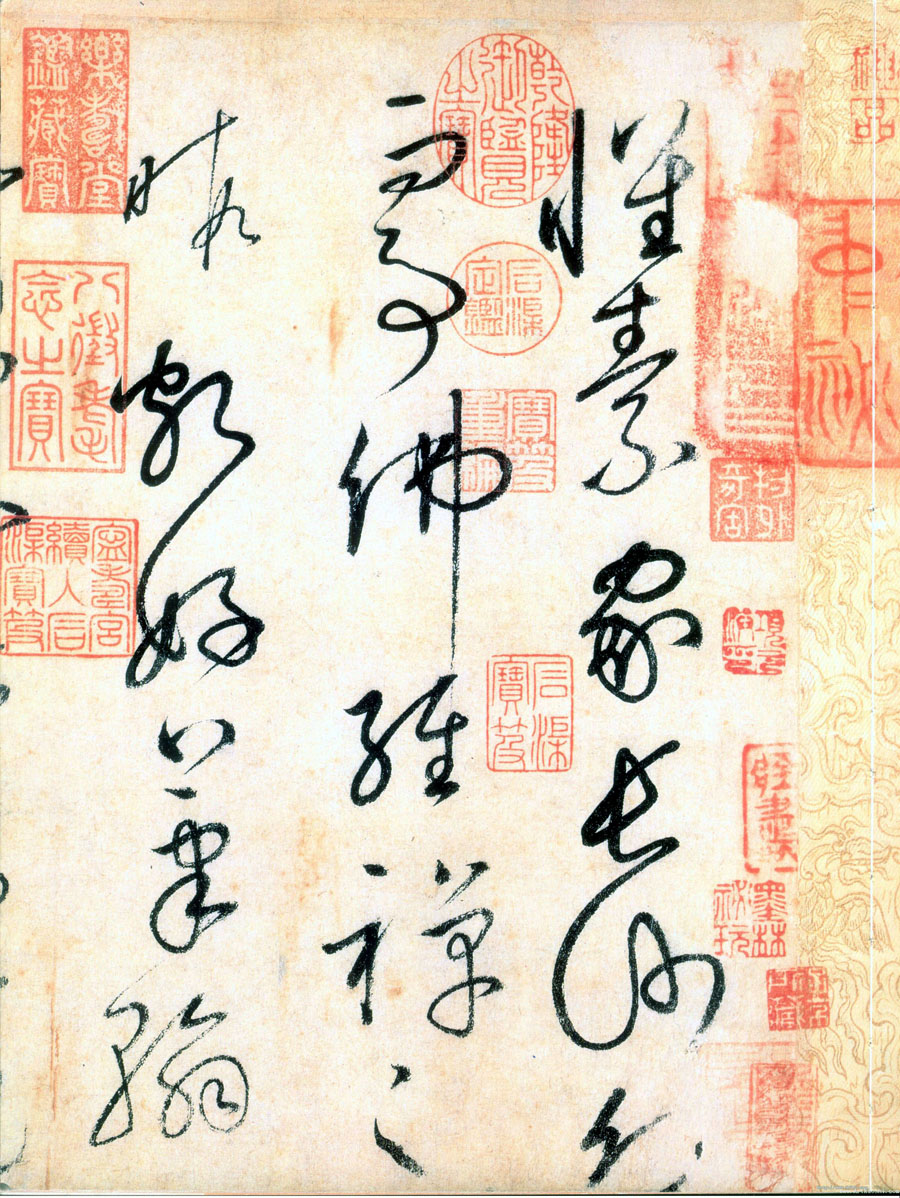 懷素家長沙幼
而事佛經禪之
暇頗好筆翰
乾隆御覽之寶
石渠定鑑
寶笈重編
石渠寶笈
樂壽堂鑑藏寶
八徵耄念之寶
寧壽宮續入石渠寶笈
墨林祕玩